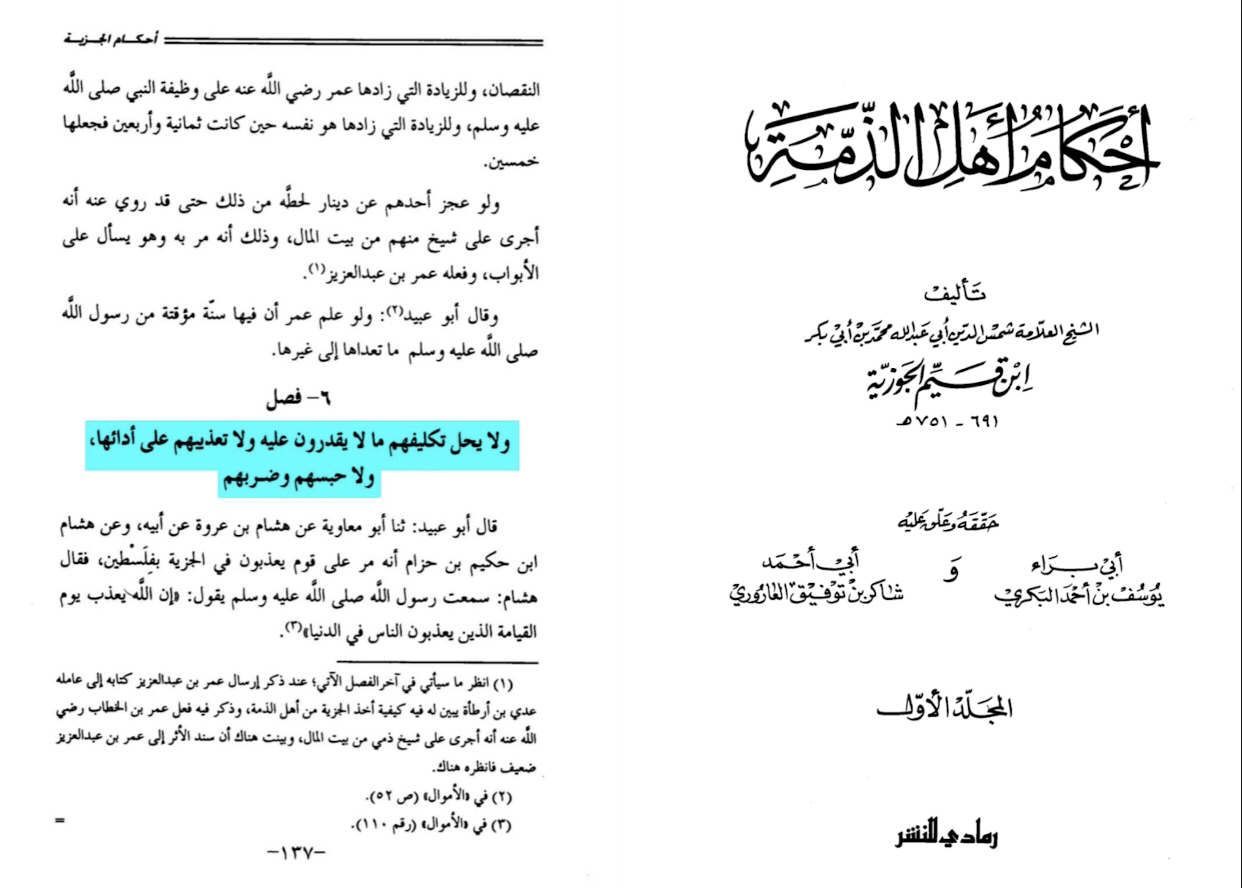 أحكام أهل الذمة
تأليف
الشيخ العلامة شمس الدين أبي عبد الله محمد بن أبي بكر
ابن قيم الجوزية
٦٩١ - ٧٥١ هـ
حققه وعلق عليه
أبي براء
يوسف بن أحمد البكري
و
أبي أحمد
شاكر بن توفيق العاروري
المجلد الأول
رمادي للنشر
أحكام الجزية
النقصان، وللزيادة التي زادها عمر رضي اللَّه عنه على وظيفة النبي صلى اللَّه
عليه وسلم، وللزيادة التي زادها هو نفسه حين كانت ثمانية وأربعين فجعلها
خمسين.
ولو عجز أحدهم عن دينار لحطَّه من ذلك حتى قد روي عنه أنه
أجرى على شيخ منهم من بيت المال، وذلك أنه مر به وهو يسأل على
الأبواب، وفعله عمر بن عبدالعزيز(١).
وقال أبو عبيد(٢): ولو علم عمر أن فيها سنّة مؤقتة من رسول اللَّه
صلى اللَّه عليه وسلم ما تعداها إلى غيرها.
٦- فصل
ولا يحل تكليفهم ما لا يقدرون عليه ولا تعذيبهم على أدائها،
ولا حبسهم وضربهم
قال أبو عبيد: ثنا أبو معاوية عن هشام بن عروة عن أبيه، وعن هشام
ابن حكيم بن حزام أنه مر على قوم يعذبون في الجزية بفِلَسْطين، فقال
هشام: سمعت رسول اللَّه صلى اللَّه عليه وسلم يقول: «إن اللَّه يعذب يوم
القيامة الذين يعذبون الناس في الدنيا»(٣).
(١) انظر ما سيأتي في آخر الفصل الآتي؛ عند ذكر إرسال عمر بن عبدالعزيز كتابه إلى عامله
عدي بن أرطأة يبين له فيه كيفية أخذ الجزية من أهل الذمة، وذكر فيه فعل عمر بن الخطاب رضي
اللَّه عنه أنه أجرى على شيخ ذمي من بيت المال، وبينت هناك أن سند الأثر إلى عمر بن عبدالعزيز
ضعيف فانظره هناك.
(٢) في «الأموال» (ص ٥٢).
(٣) في «الأموال» (رقم ١١٠).
=
-١٣٧-